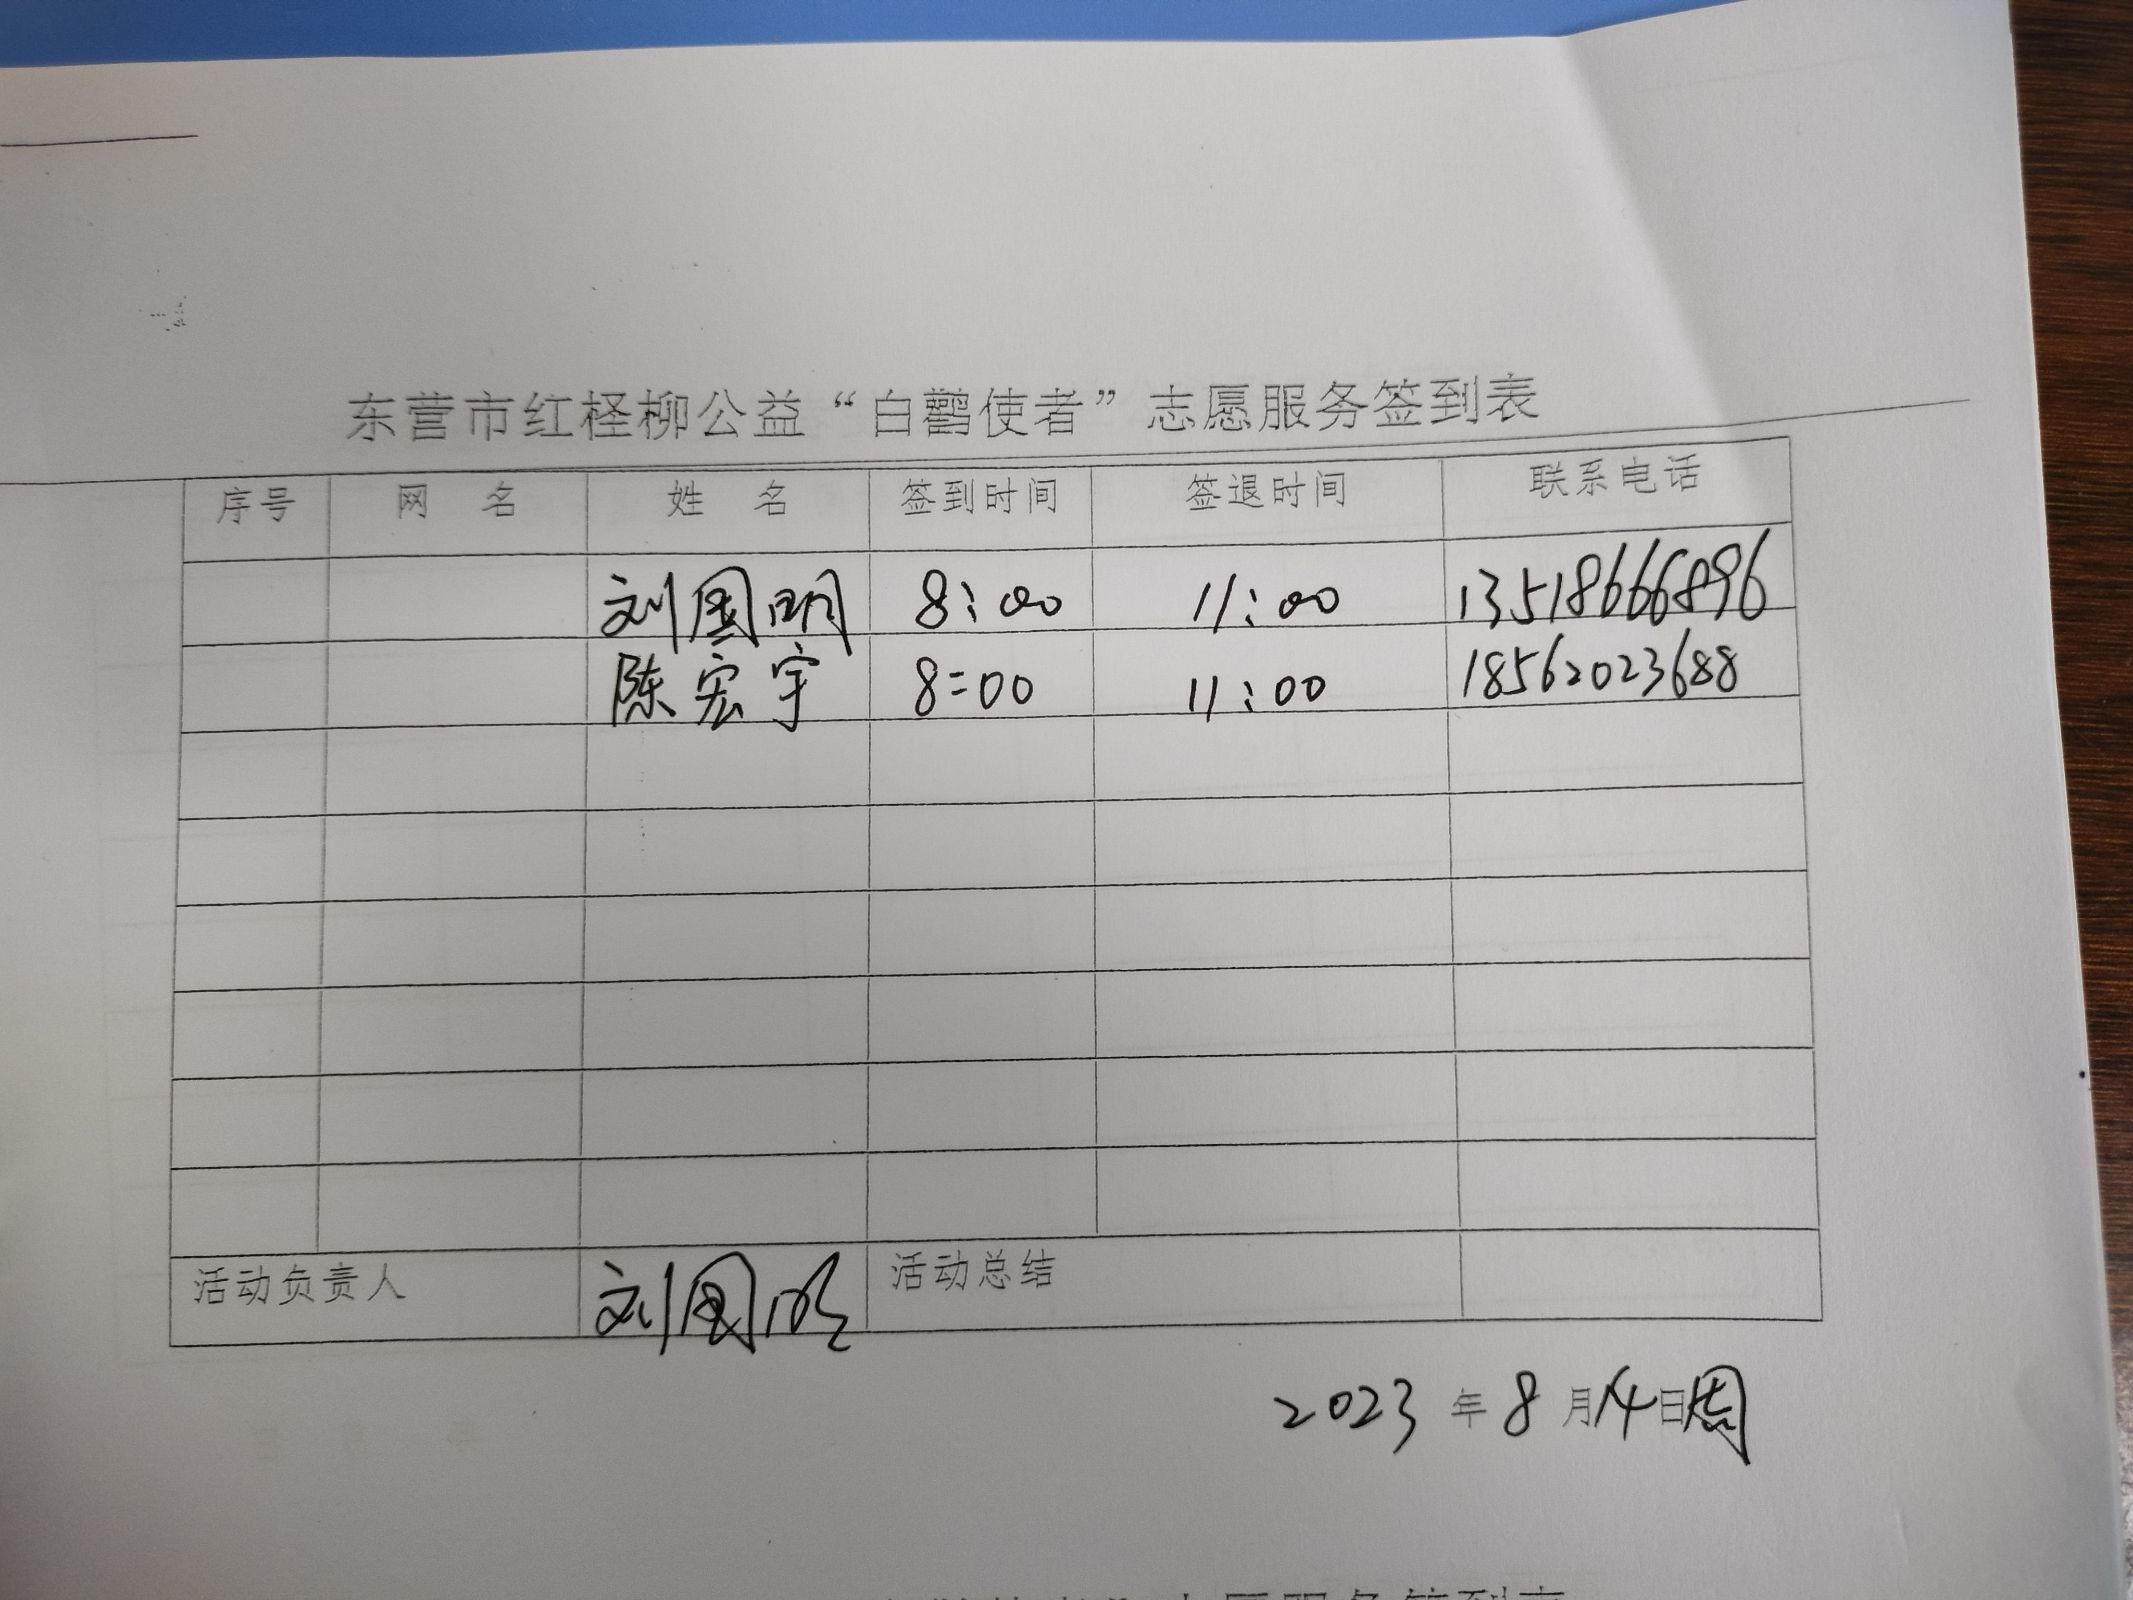 东营市红柽柳公益“白鹳使者”志愿服务签到表
序号 网 名 姓 名 签到时间 签退时间 联系电话
刘国明 8:00 11:00 13518666896
陈宏宇 8:00 11:00 18562023688
活动负责人 刘国明 活动总结
2023 年 8 月 14 日 周